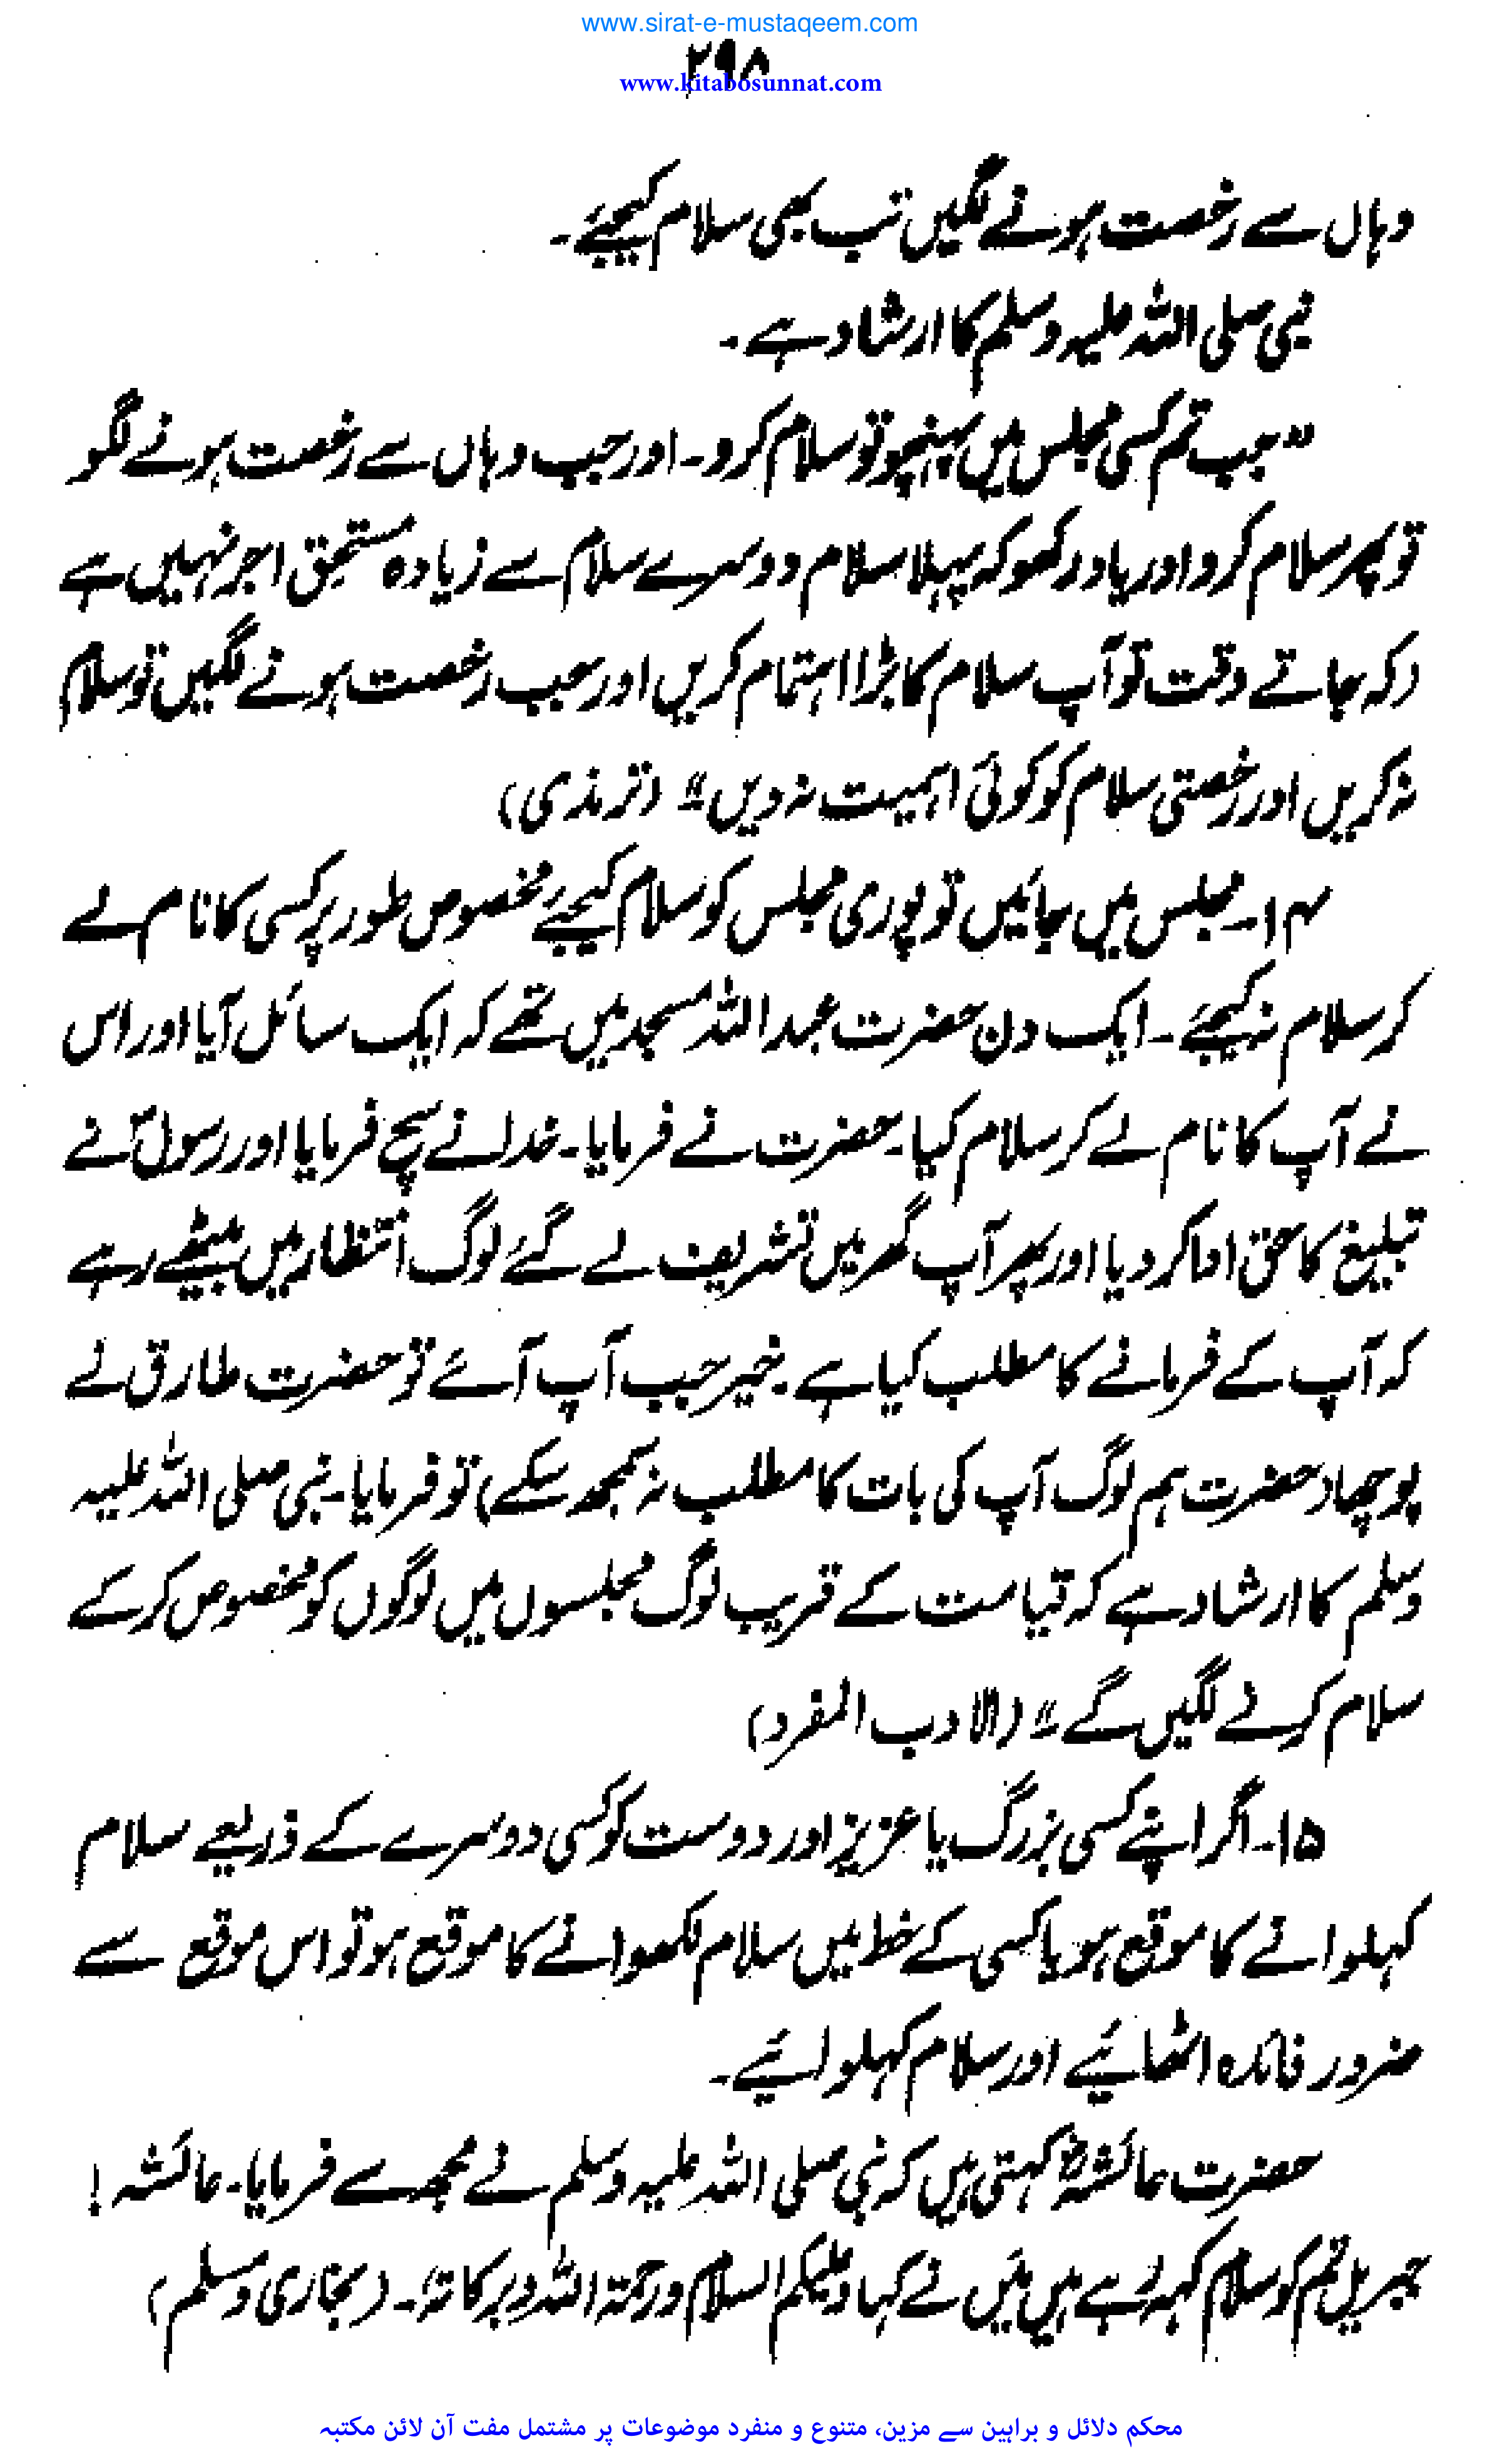 www.sirat-e-mustaqeem.com
۲۹۸
www.kitabosunnat.com
وہاں سے رخصت ہونے لگیں تب بھی سلام کیجئے۔
نبی صلی اللہ علیہ وسلم کا ارشاد ہے۔
”جب تم کسی مجلس میں پہنچو تو سلام کرو۔ اور جب وہاں سے رخصت ہونے لگو
تو پھر سلام کرو اور یاد رکھو کہ پہلا سلام دوسرے سلام سے زیادہ مستحق اجر نہیں ہے
(کہ جاتے وقت تو آپ سلام کا بڑا اہتمام کریں اور جب رخصت ہونے لگیں تو سلام
نہ کریں اور رخصتی سلام کو کوئی اہمیت نہ دیں“ (ترمذی)
۱۴۔ مجلس میں جائیں تو پوری مجلس کو سلام کیجئے مخصوص طور پر کسی کا نام لے
کر سلام نہ کیجئے ۔ ایک دن حضرت عبداللہ مسجد میں تھے کہ ایک سائل آیا اور اس
نے آپ کا نام لے کر سلام کیا۔ حضرت نے فرمایا۔ خدا نے سچ فرمایا اور رسولؐ نے
تبلیغ کا حق ادا کر دیا اور پھر آپ گھر میں تشریف لے گئے لوگ انتظار میں بیٹھے رہے
کہ آپ کے فرمانے کا مطلب کیا ہے ۔ خیر جب آپ آئے تو حضرت طارق نے
پوچھا (حضرت ہم لوگ آپ کی بات کا مطلب نہ سمجھ سکے) تو فرمایا۔ نبی صلی اللہ علیہ
وسلم کا ارشاد ہے کہ قیامت کے قریب لوگ مجلسوں میں لوگوں کو مخصوص کر کے
سلام کرنے لگیں گے“ (الادب المفرد)
۱۵۔ اگر اپنے کسی بزرگ یا عزیز اور دوست کو کسی دوسرے کے ذریعے سلام
کہلوانے کا موقع ہو یا کسی کے خط میں سلام لکھوانے کا موقع ہو تو اس موقع سے
ضرور فائدہ اٹھائیے اور سلام کہلوائیے۔
حضرت عائشہؓ کہتی ہیں کہ نبی صلی اللہ علیہ وسلم نے مجھ سے فرمایا۔ عائشہ !
جبریل تم کو سلام کہہ رہے ہیں میں نے کہا وعلیکم السلام ورحمۃ اللہ وبرکاتہٗ۔ (بخاری و مسلم)
محکم دلائل و براہین سے مزین، متنوع و منفرد موضوعات پر مشتمل مفت آن لائن مکتبہ